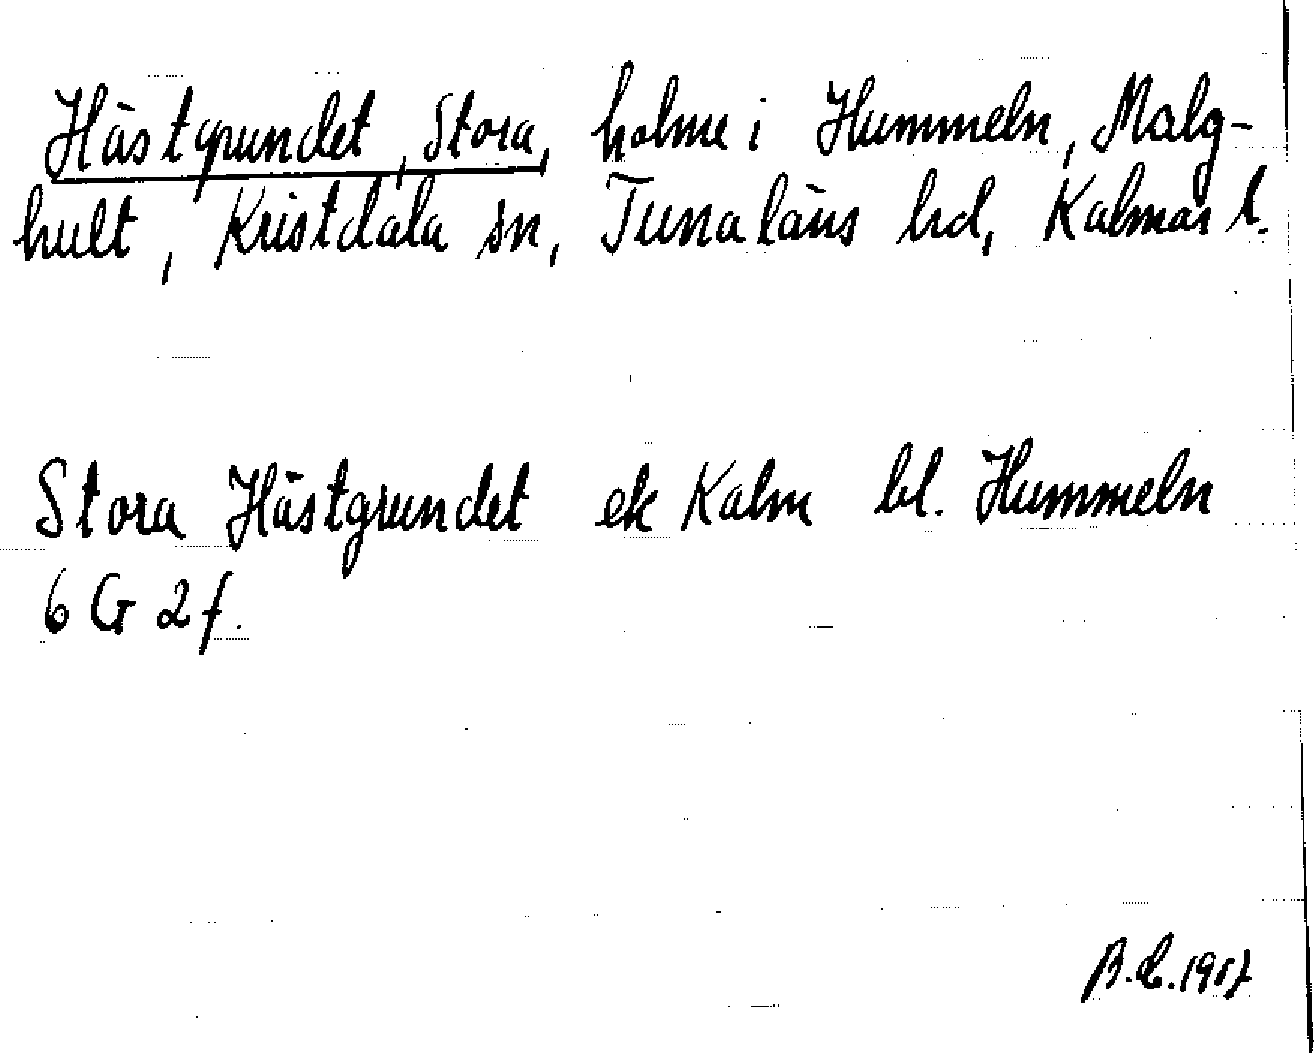 Hästgrundet, Stora, holme i Hummeln, Malg-
hult, Kristdala sn, Tunaläns hd, Kalmar l.
Stora Hästgrundet ek Kalm bl. Hummeln
6 G 2f.